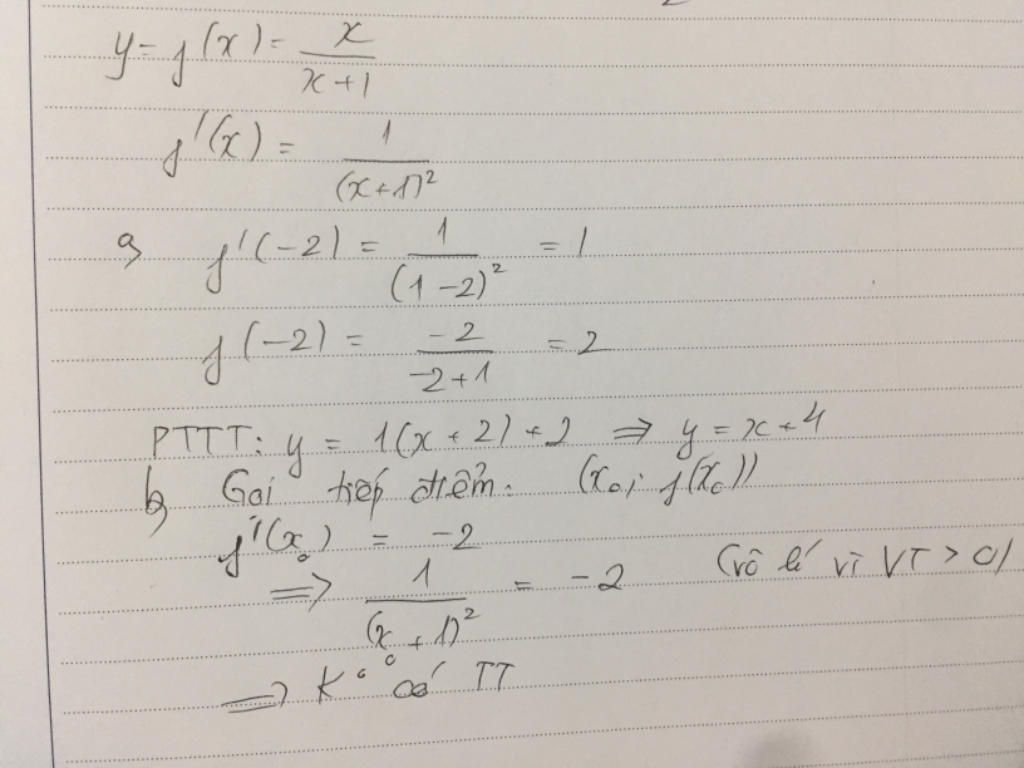 y = f(x) = x/(x+1)
f'(x) = 1/(x+1)²
a, f'(-2) = 1/(1-2)² = 1
f(-2) = -2/(-2+1) = 2
PTTT: y = 1(x+2)+2 ⇒ y = x+4
b, Gọi tiếp điểm: (x₀; f(x₀))
f'(x₀) = -2
⇒ 1/(x₀+1)² = -2 (vô lí vì VT > 0)
⇒ K° có TT